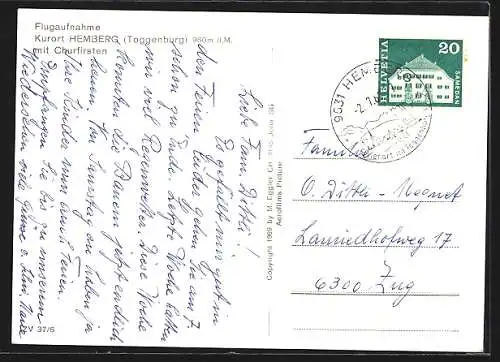 Flugaufnahme
Kurort HEMBERG (Toggenburg) 960m ü.M.
mit Churfirsten
Lieb. Fam. Dittli!
Es gefällt mir gut in
den Ferien. Leider gehen sie am 7.
schon zu Ende. Letzte Woche hatten
wir viel Regenwetter. Diese Woche
konnten die Bauern jetzt endlich
heuen. Am Samstag haben ja
Ihre Kinder nun auch Ferien.
Empfangen Sie bis zu unserem
Wiedersehn viele Grüsse v.
V 37/6
Copyright 1969 by M. Eggler CH
Aeroflims Picture
HELVETIA
20
SAMEDAN
9631 HEMBERG
Familie
O. Dittli-
Lauriedhofweg 17
6300 Zug